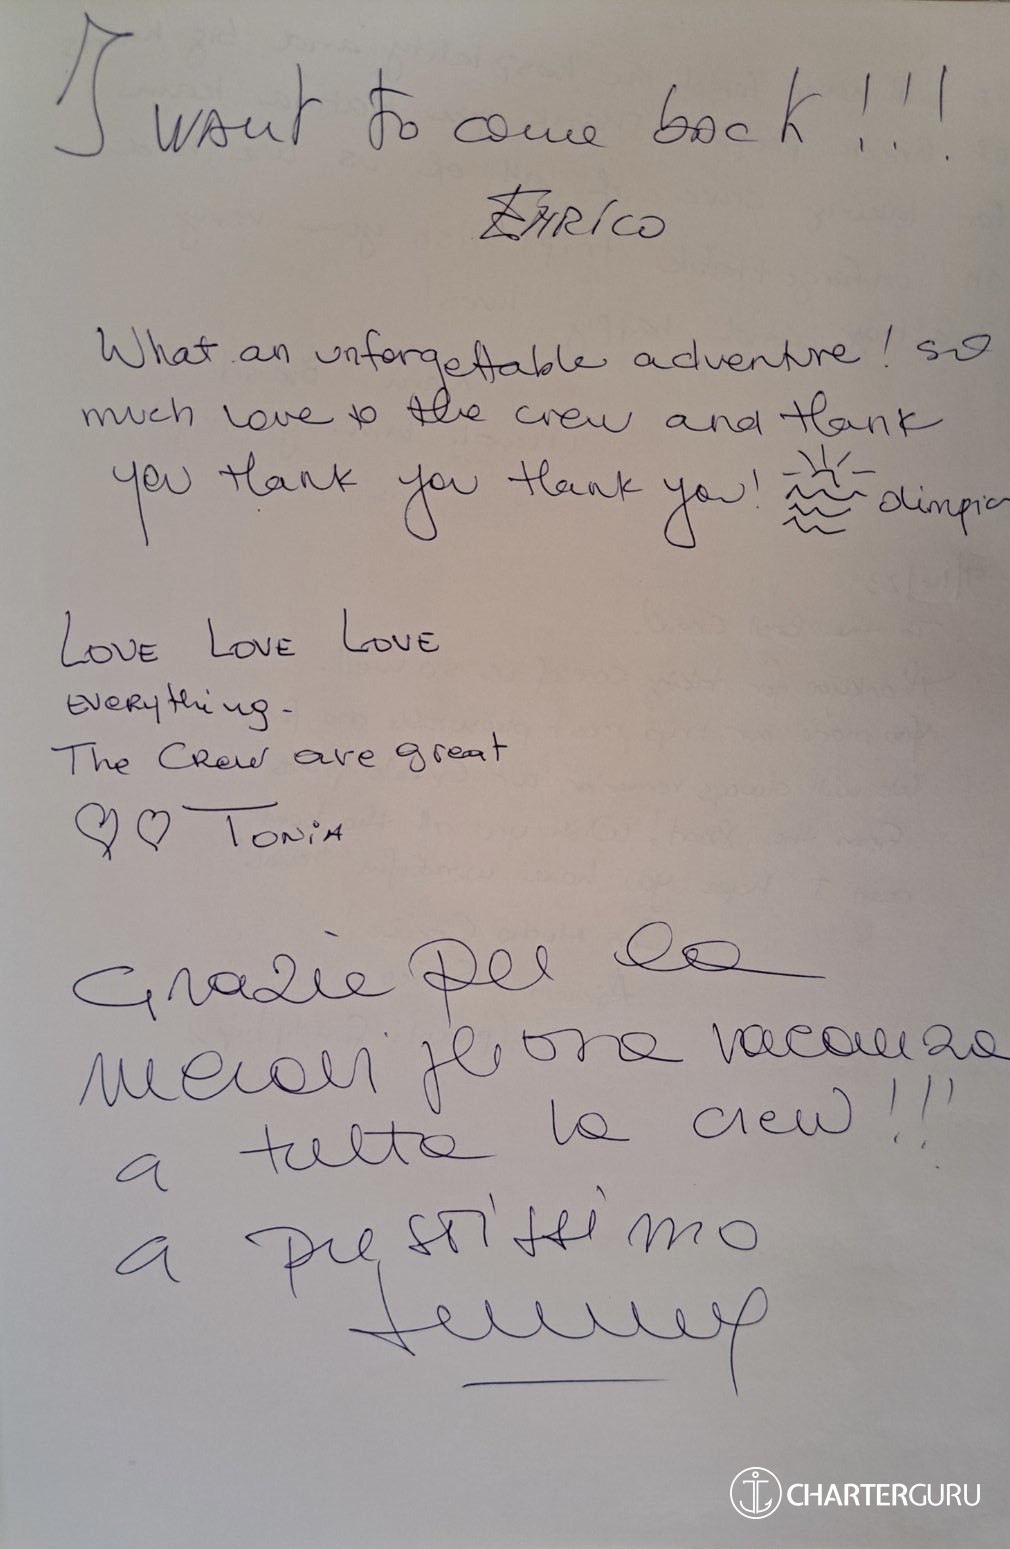 I want to come back !!!
ENRICO
What an unforgettable adventure! so
much love to the crew and thank
you thank you thank you! olimpia
LOVE LOVE LOVE
everything -
The Crew are great
♡♡ TONIA
Grazie per la
meravigliosa vacanza
a tutta la crew!!!
a prestissimo
CHARTERGURU